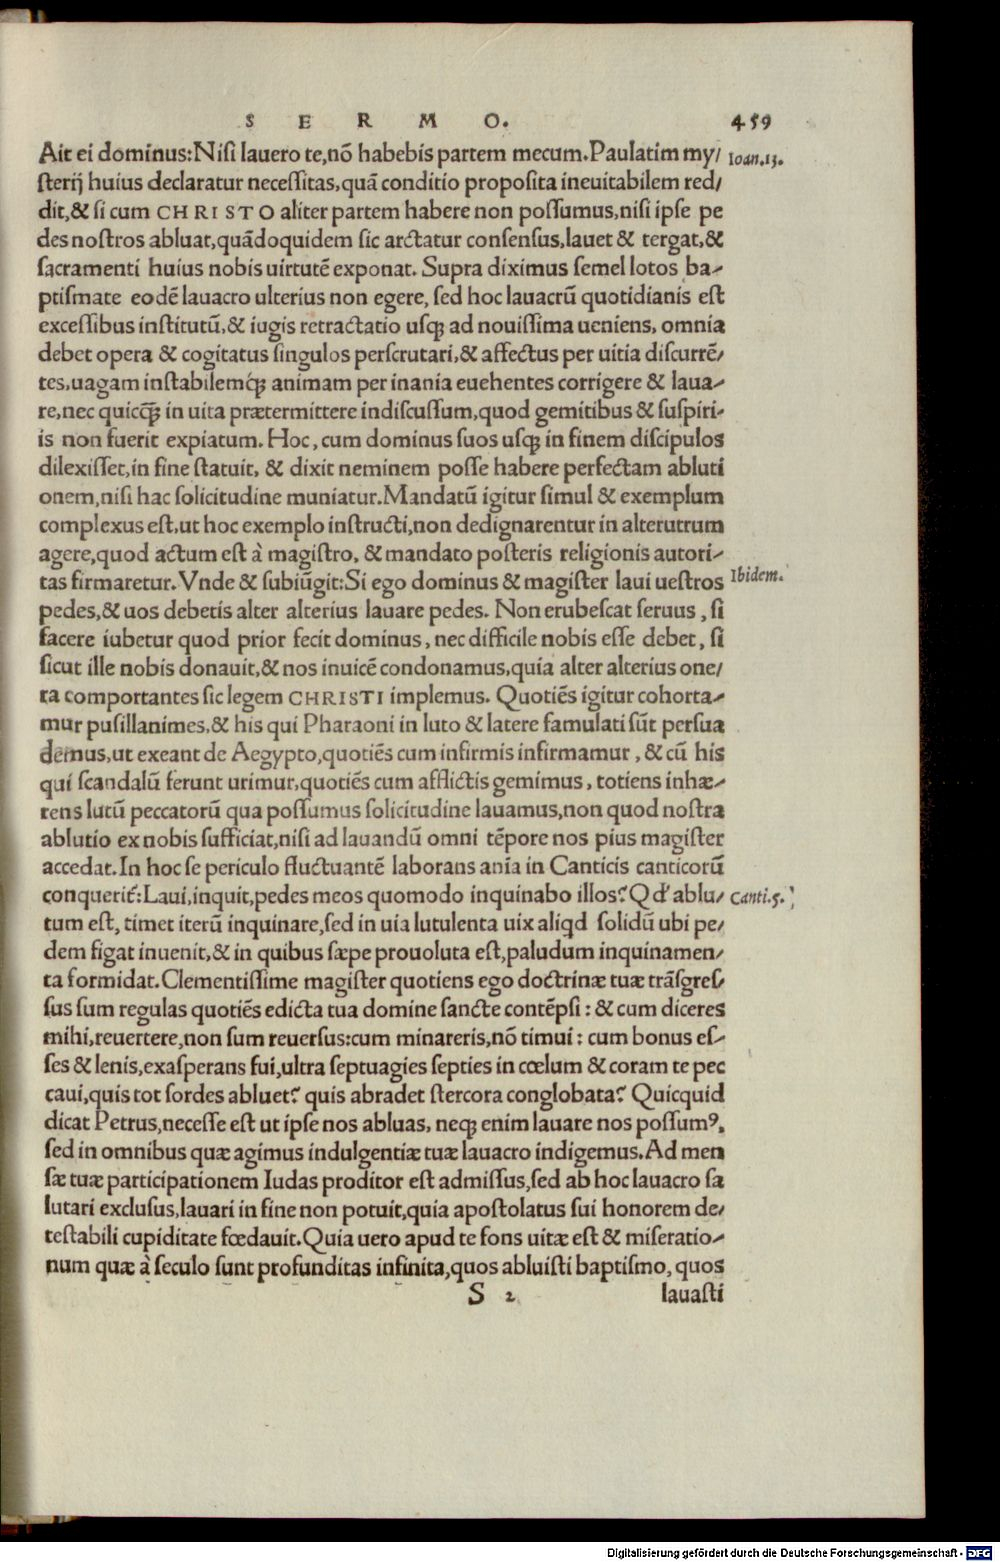 S E R M O. 459
Ait ei dominus:Nisi lauero te,nõ habebis partem mecum.Paulatim my/ Ioan.13.
ſterij huius declaratur neceſſitas,quã conditio propoſita ineuitabilem red/
dit,& ſi cum CHRISTO aliter partem habere non poſſumus,niſi ipſe pe
des noſtros abluat,quãdoquidem ſic arctatur conſenſus,lauet & tergat,&
ſacramenti huius nobis uirtutẽ exponat. Supra diximus ſemel lotos ba-
ptiſmate eodẽ lauacro ulterius non egere, ſed hoc lauacrũ quotidianis eſt
exceſſibus inſtitutũ,& iugis retractatio uſq; ad nouiſſima ueniens, omnia
debet opera & cogitatus ſingulos perſcrutari,& affectus per uitia diſcurrẽ/
tes,uagam inſtabilemq́; animam per inania euehentes corrigere & laua-
re,nec quicq̃; in uita prætermittere indiſcuſſum,quod gemitibus & ſuſpiri-
is non fuerit expiatum. Hoc, cum dominus ſuos uſq; in finem diſcipulos
dilexiſſet,in fine ſtatuit, & dixit neminem poſſe habere perfectam abluti
onem,niſi hac ſolicitudine muniatur.Mandatũ igitur ſimul & exemplum
complexus eſt,ut hoc exemplo inſtructi,non dedignarentur in alterutrum
agere,quod actum eſt à magiſtro, & mandato poſteris religionis autori-
tas firmaretur.Vnde & ſubiũgit:Si ego dominus & magiſter laui ueſtros Ibidem.
pedes,& uos debetis alter alterius lauare pedes. Non erubeſcat ſeruus, ſi
facere iubetur quod prior fecit dominus, nec difficile nobis eſſe debet, ſi
ſicut ille nobis donauit,& nos inuicẽ condonamus,quia alter alterius one/
ra comportantes ſic legem CHRISTI implemus. Quotiẽs igitur cohorta-
mur puſillanimes,& his qui Pharaoni in luto & latere famulati ſũt perſua
demus,ut exeant de Aegypto,quotiẽs cum infirmis infirmamur, & cũ his
qui ſcandalũ ferunt urimur,quotiẽs cum afflictis gemimus, totiens inhæ-
rens lutũ peccatorũ qua poſſumus ſolicitudine lauamus,non quod noſtra
ablutio ex nobis ſufficiat,niſi ad lauandũ omni tẽpore nos pius magiſter
accedat.In hoc ſe periculo fluctuantẽ laborans aĩa in Canticis canticorũ
conquerit̃:Laui,inquit,pedes meos quomodo inquinabo illos? Qd' ablu/ Canti.5.
tum eſt, timet iterũ inquinare,ſed in uia lutulenta uix aliqd ſolidũ ubi pe/
dem figat inuenit,& in quibus ſæpe prouoluta eſt,paludum inquinamen/
ta formidat.Clementiſſime magiſter quotiens ego doctrinæ tuæ trãſgreſ/
ſus ſum regulas quotiẽs edicta tua domine ſancte contẽpſi : & cum diceres
mihi,reuertere,non ſum reuerſus:cum minareris,nõ timui : cum bonus eſ-
ſes & lenis,exaſperans fui,ultra ſeptuagies ſepties in cœlum & coram te pec
caui,quis tot ſordes abluet? quis abradet ſtercora conglobata? Quicquid
dicat Petrus,neceſſe eſt ut ipſe nos abluas, neq; enim lauare nos poſſumꝰ,
ſed in omnibus quæ agimus indulgentiæ tuæ lauacro indigemus.Ad men
ſæ tuæ participationem Iudas proditor eſt admiſſus,ſed ab hoc lauacro ſa
lutari excluſus,lauari in fine non potuit,quia apoſtolatus ſui honorem de/
teſtabili cupiditate fœdauit.Quia uero apud te fons uitæ eſt & miſeratio-
num quæ à ſeculo ſunt profunditas infinita,quos abluiſti baptiſmo, quos
S 2 lauaſti
Digitalisierung gefördert durch die Deutsche Forschungsgemeinschaft - DFG